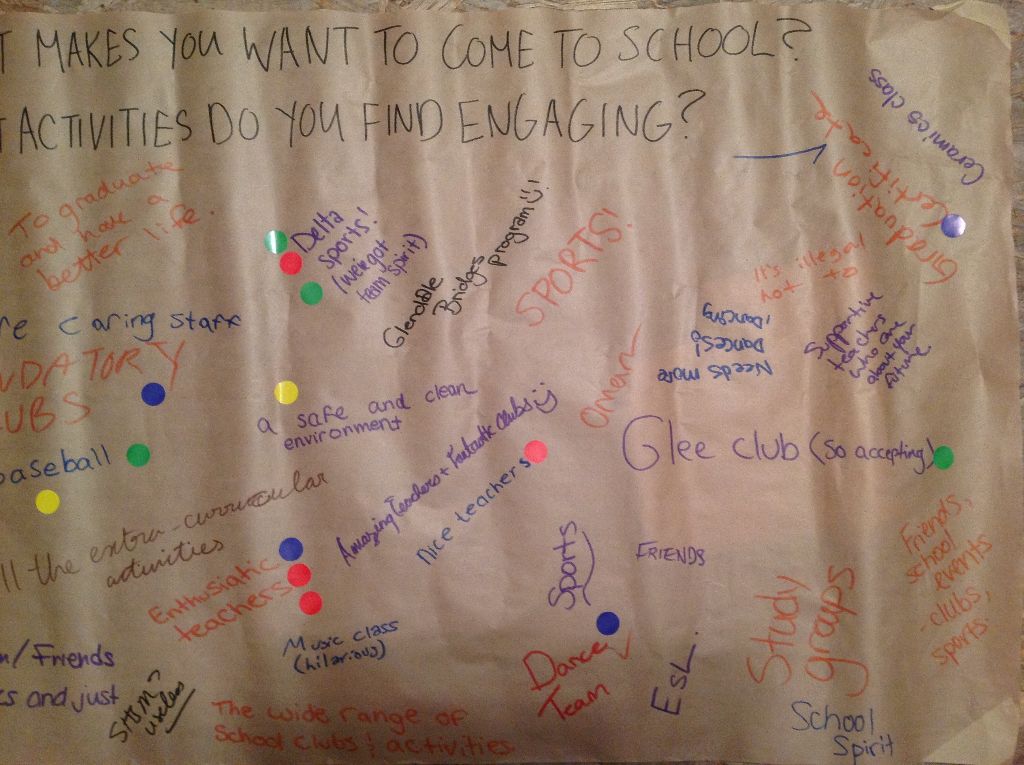 T MAKES YOU WANT TO COME TO SCHOOL?
T ACTIVITIES DO YOU FIND ENGAGING?
To graduate
and have a
better life.
Delta
sports!
(we've got
team spirit)
Glendale
Bridges
program :)!
SPORTS!
Ceramics class
Graduation
Certificate
It's illegal
not to
Needs more
Dances!
Dancing!
Supportive
teachers
who care
about your
future
re caring staff
NDATORY
UBS
baseball
a safe and clean
environment
Amazing Teachers + Fantastic Clubs :)
nice teachers
Glee club (so accepting)
ll the extra-curricular
activities
Enthusiatic
teachers
Music class
(hilarious)
Sports
FRIENDS
Study
groups
Friends,
school
events
clubs,
sports.
n/Friends
cs and just
useless
The wide range of
School clubs & activities.
Dance
Team
ESL.
School
Spirit